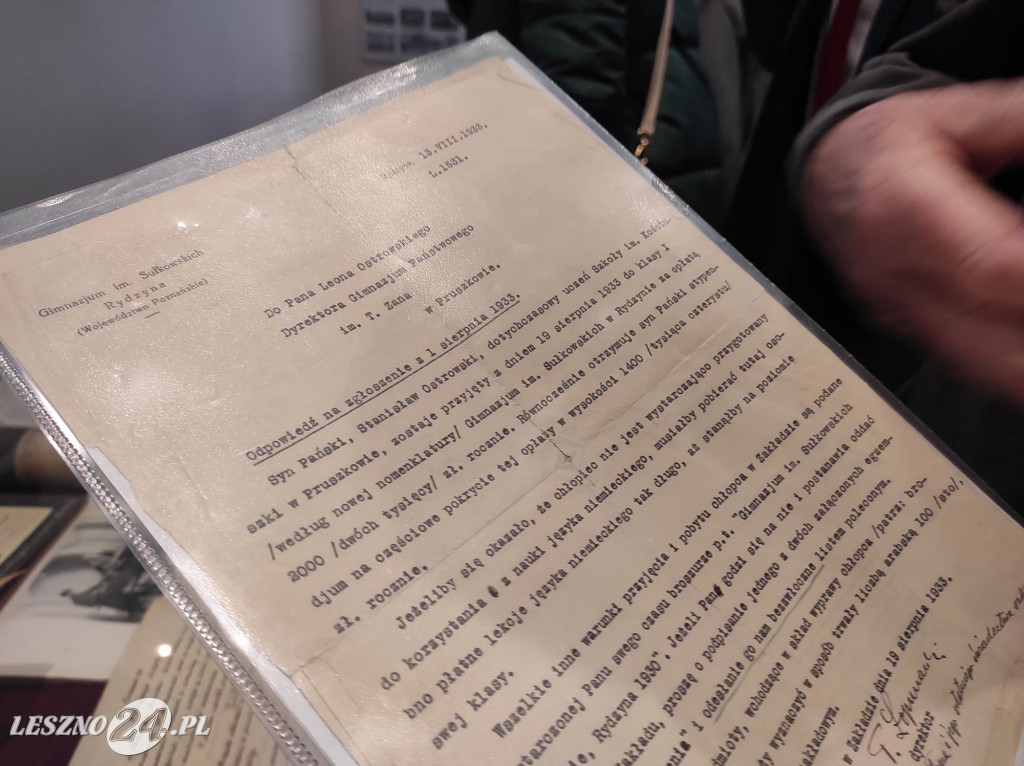 Rydzyna, 13.VIII.1933.
L.1531.
Gimnazjum im. Sułkowskich
Rydzyna
(Województwo Poznańskie)
Do Pana Leona Ostrowskiego
Dyrektora Gimnazjum Państwowego
im. T. Zana
w Pruszkowie.
Odpowiedź na zgłoszenie z 1 sierpnia 1933.
Syn Pański, Stanisław Ostrowski, dotychczasowy uczeń Szkoły im. Kościu-
szki w Pruszkowie, zostaje przyjęty z dniem 19 sierpnia 1933 do klasy I
/według nowej nomenklatury/ Gimnazjum im. Sułkowskich w Rydzynie za opłatą
2000 /dwóch tysięcy/ zł. rocznie. Równocześnie otrzymuje syn Pański stypen-
djum na częściowe pokrycie tej opłaty w wysokości 1400 /tysiąca czterystu/
zł. rocznie.
Jeżeliby się okazało, że chłopiec nie jest wystarczająco przygotowany
do korzystania z nauki języka niemieckiego, musiałby pobierać tutaj oso-
bno płatne lekcje języka niemieckiego tak długo, aż stanąłby na poziomie
swej klasy.
Wszelkie inne warunki przyjęcia i pobytu chłopca w Zakładzie są podane
starczonej Panu swego czasu broszurze p.t. "Gimnazjum im. Sułkowskich
e, Rydzyna 1930". Jeżeli Pan godzi się na nie i postanawia oddać
akładu, proszę o podpisanie jednego z dwóch załączonych egzem-
nia" i odesłanie go nam bezzwłoczne listem poleconym.
dmioty, wchodzące w skład wyprawy chłopca /patrz: bro-
y wyznaczyć w sposób trwały liczbą arabską 100 /sto/.
kładowym.
w Zakładzie dnia 19 sierpnia 1933.
dyrektor
LESZNO24.PL